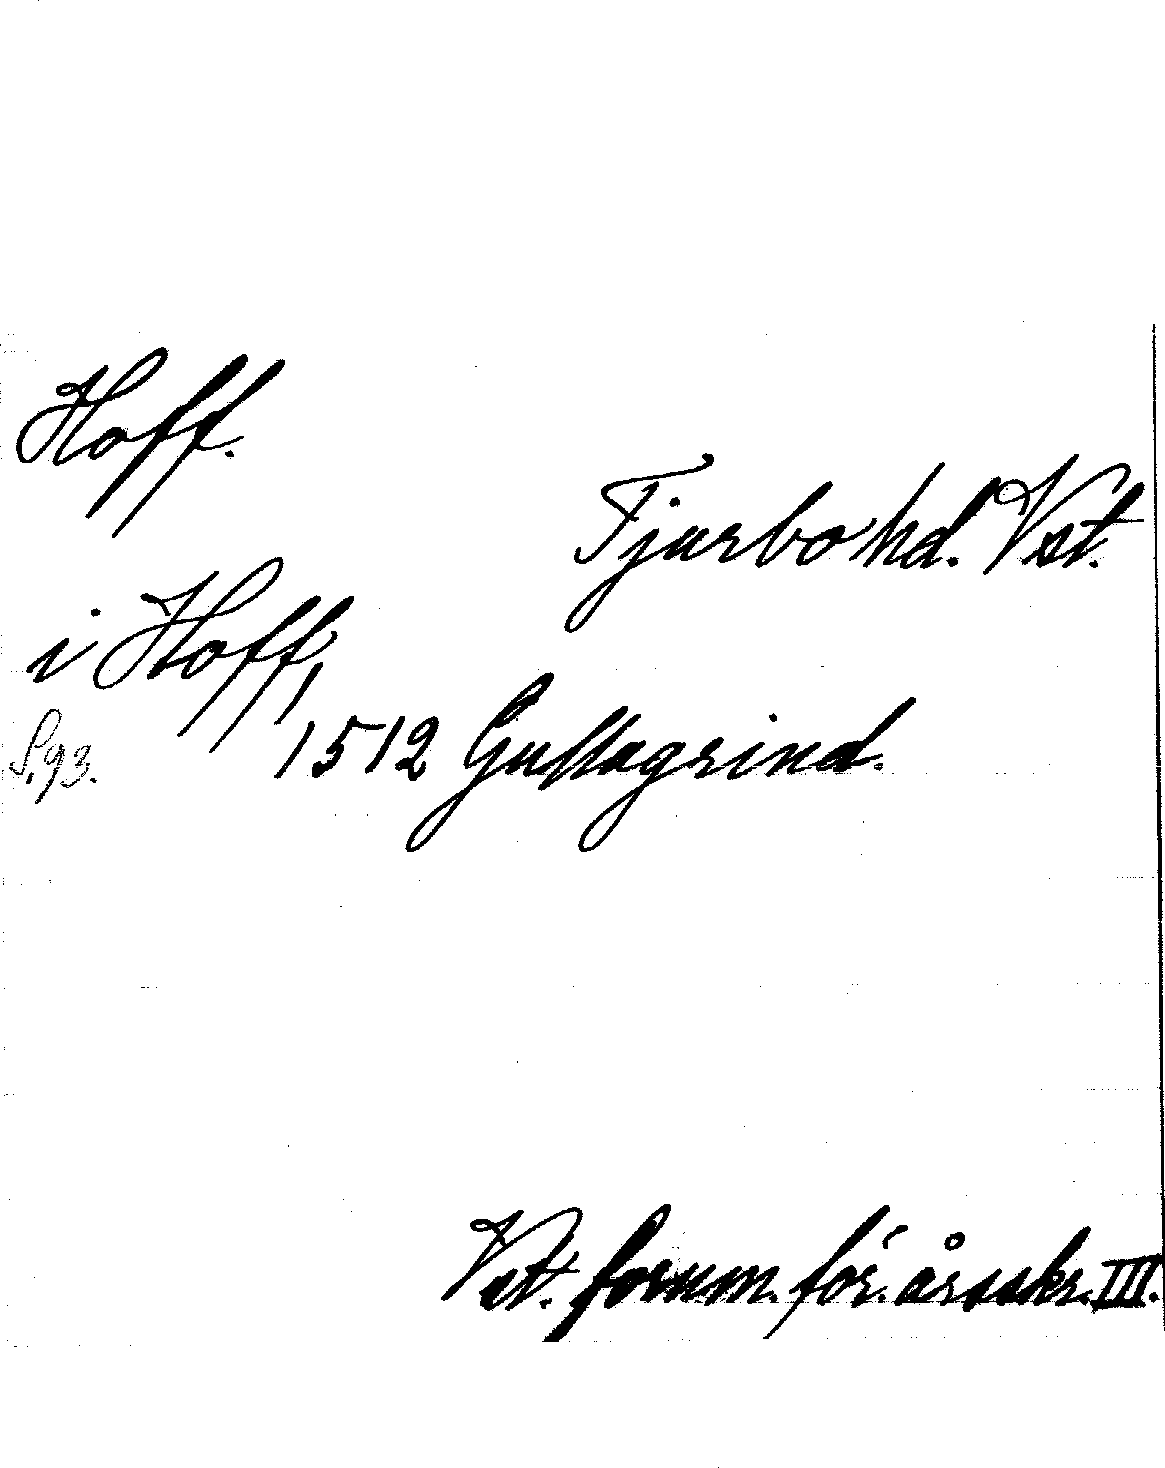 Hoff.
Tjurbo hd. Vst.
i Hoff,
S. 93.
1512 Gullagrind.
Vst. fornm. för. årsskr. III.